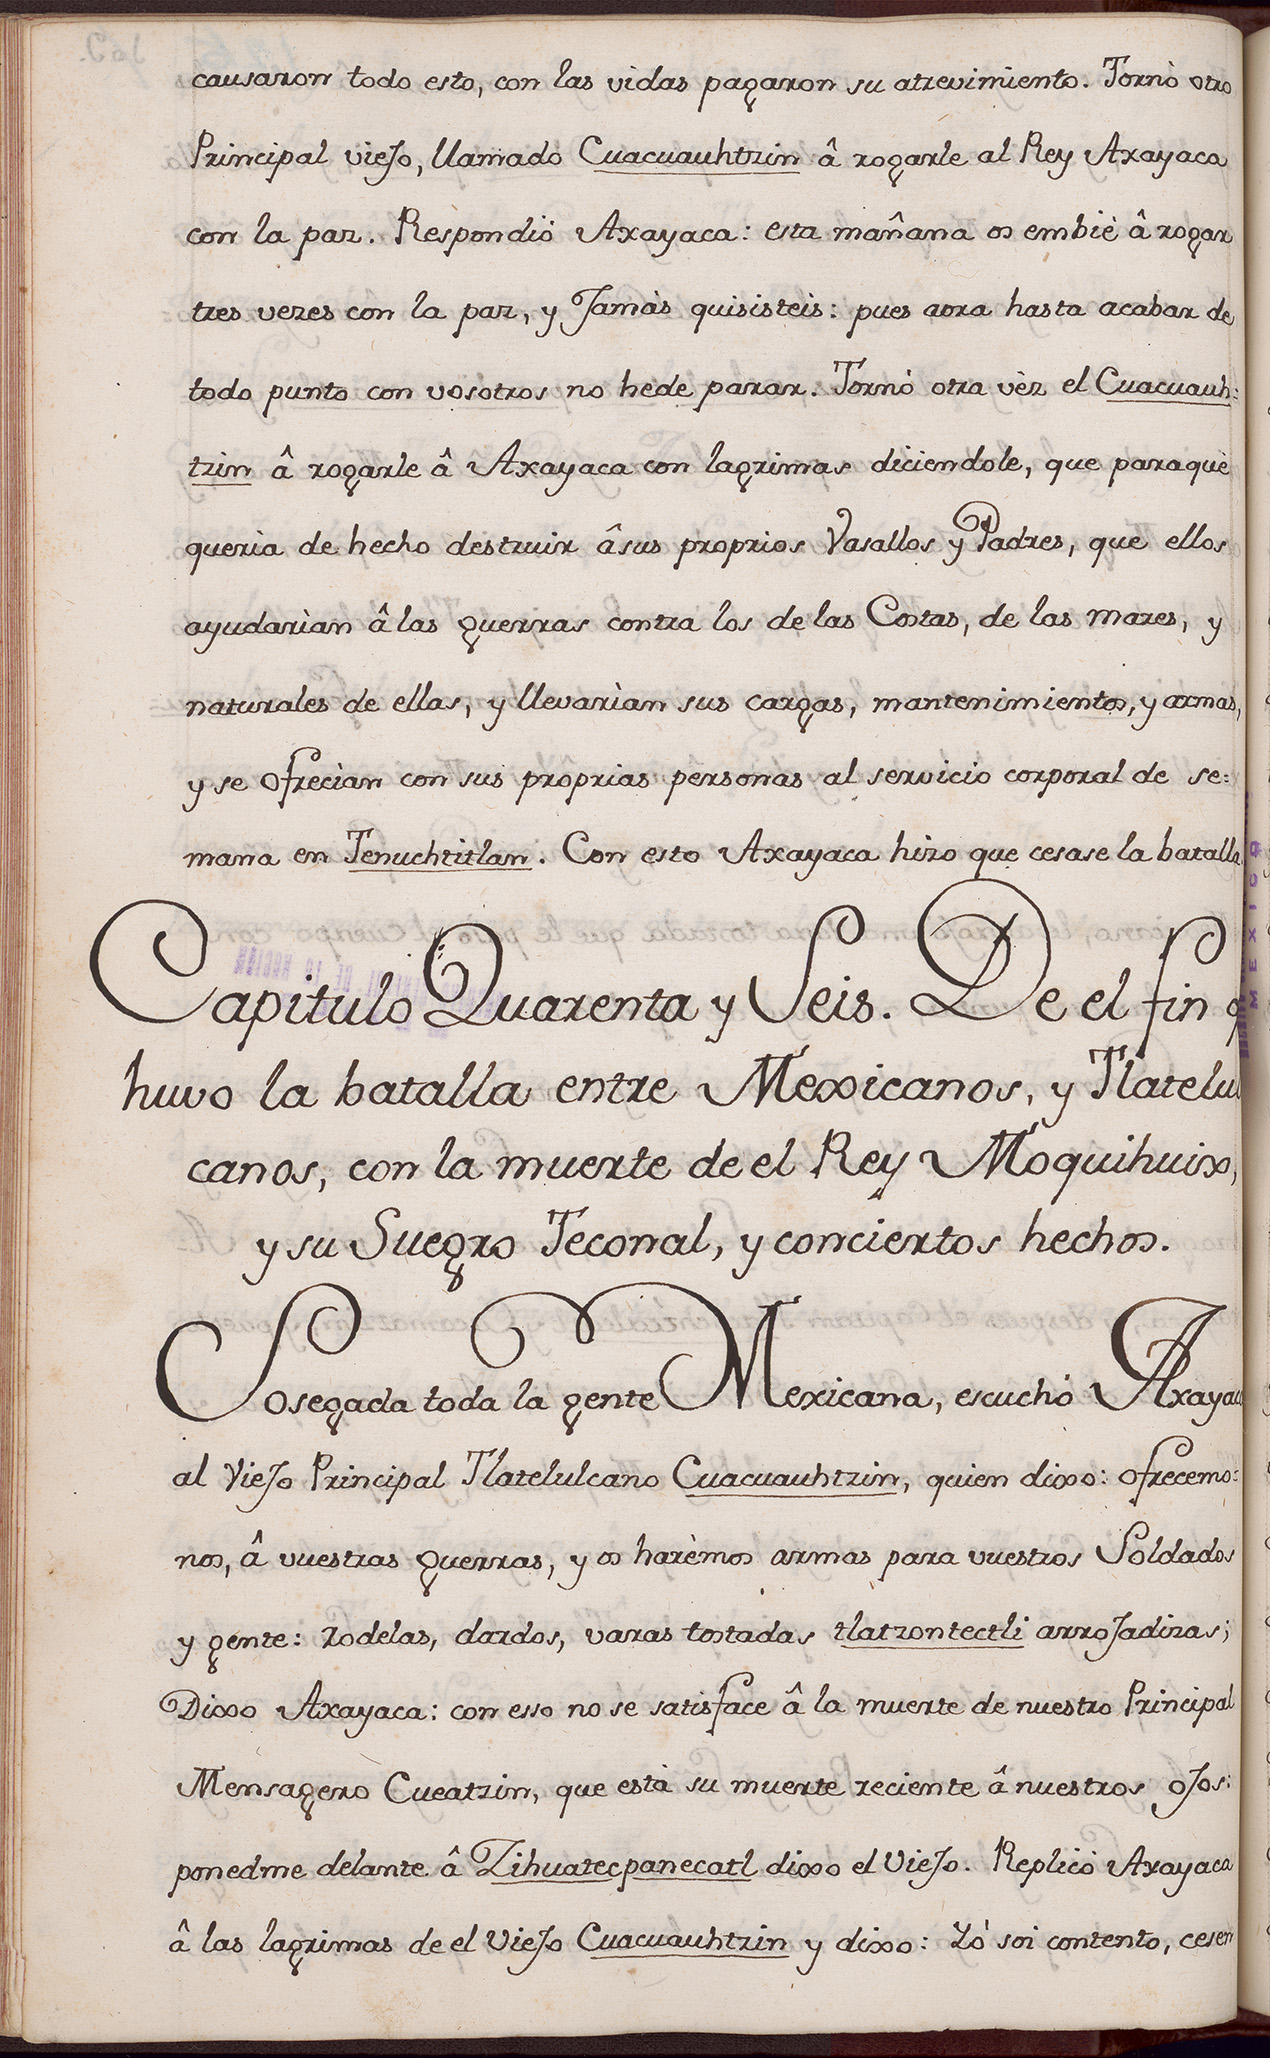 causaron todo esto, con las vidas pagaron su atrevimiento. Tornò otro
Principal vieJo, llamado Cuacuauhtzin â rogarle al Rey Axayaca
con la paz. Respondiò Axayaca: esta mañana os embiè â rogar
tres vezes con la paz, y Jamàs quisisteis: pues aora hasta acabar de
todo punto con vosotros no hede parar. Tornò otra vèz el Cuacuauh:
tzin â rogarle â Axayaca con lagrimas diciendole, que paraquè
querìa de hecho destruir âsus proprios Vasallos y Padres, que ellos
ayudarìan â las guerras contra los de las Costas, de las mares, y
naturales de ellas, y llevarìan sus cargas, mantenimientos, y armas,
y se ofrecìan con sus proprias personas al servicio corporal de se:
mana en Tenuchtitlan. Con esto Axayaca hizo que cesase la batalla
Capitulo Quarenta y Seis. De el fin q
huvo la batalla entre Mexicanos, y Tlatelul
canos, con la muerte de el Rey Moquihuix,
y su Suegro Teconal, y conciertos hechos.
Sosegada toda la gente Mexicana, escuchò Axayaca
al VieJo Principal Tlatelulcano Cuacuauhtzin, quien dixo: ofrecemo:
nos, â vuestras guerras, y os harèmos armas para vuestros Soldados
y gente: rodelas, dardos, varas tostadas tlatzontectli arroJadizas;
Dixo Axayaca: con esso no se satisface â la muerte de nuestro Principal
Mensagero Cueatzin, que està su muerte reciente â nuestros oJos:
ponedme delante â Zihuatecpanecatl dixo el VieJo. Replicò Axayaca
â las lagrimas de el VieJo Cuacuauhtzin y dixo: Yò soi contento, cesen
MEXICO